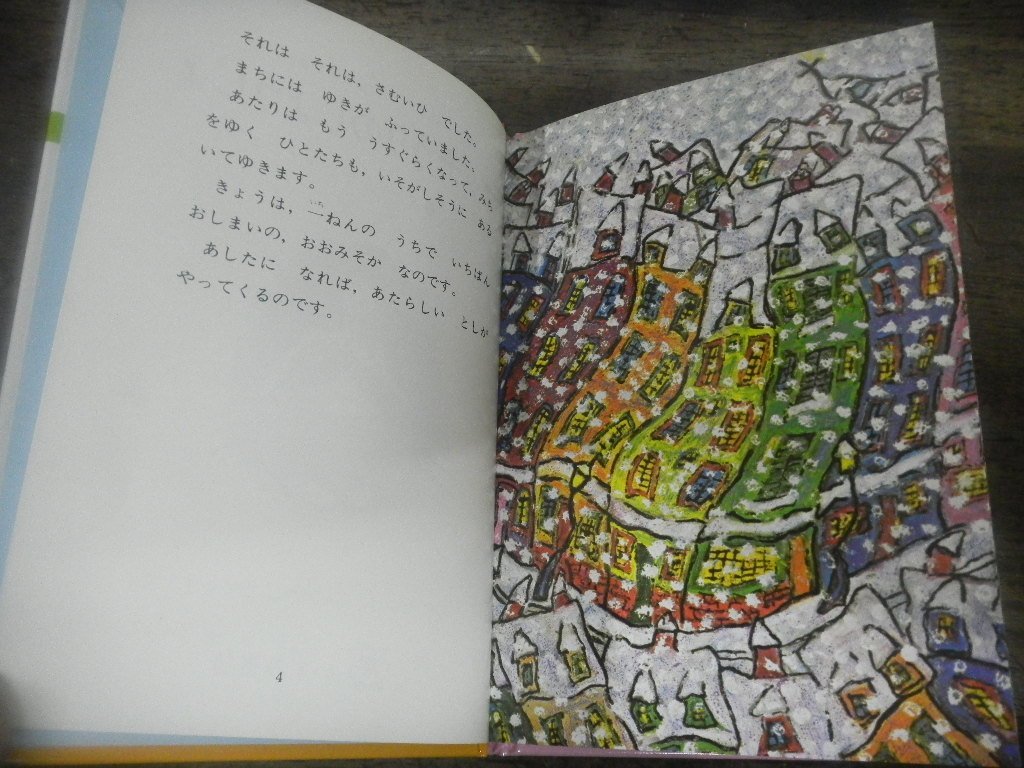 それは　それは，さむいひ　でした。
まちには　ゆきが　ふっていました。
あたりは　もう　うすぐらくなって，みち
をゆく　ひとたちも，いそがしそうに　ある
いてゆきます。
きょうは，一ねんの　うちで　いちばん
おしまいの，おおみそか　なのです。
あしたに　なれば，あたらしい　としが
やってくるのです。
4